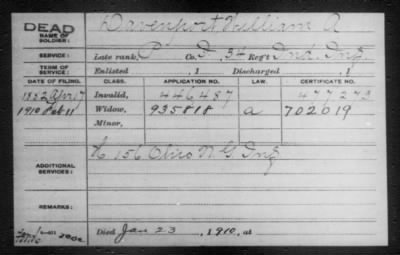 DEAD
NAME OF SOLDIER:
Davenport, William A
SERVICE:
Late rank, P Co. D, 34 Reg't Ind. Inf.
TERM OF SERVICE:
Enlisted , 1 Discharged , 1
DATE OF FILING. CLASS. APPLICATION NO. LAW. CERTIFICATE NO.
1882 Apr 17 Invalid, 446487 477273
1910 Feb 11 Widow, 935818 a 702019
Minor,
ADDITIONAL SERVICES:
K 156 Ohio N G Inf
REMARKS:
Died Jan 23, 1910, at